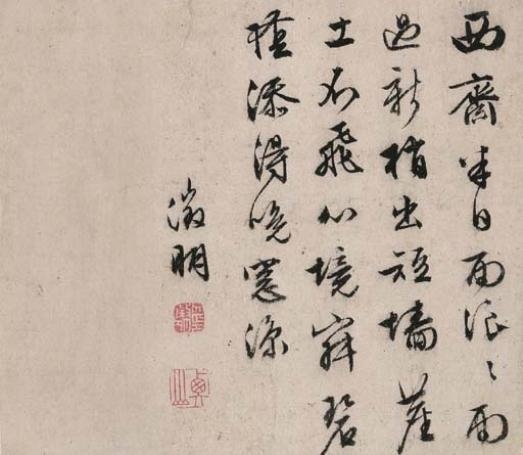 西齋半日雨浪〻雨
過新梢出短墻塵
土不飛心境寂碧
添得晚窓涼
徵明